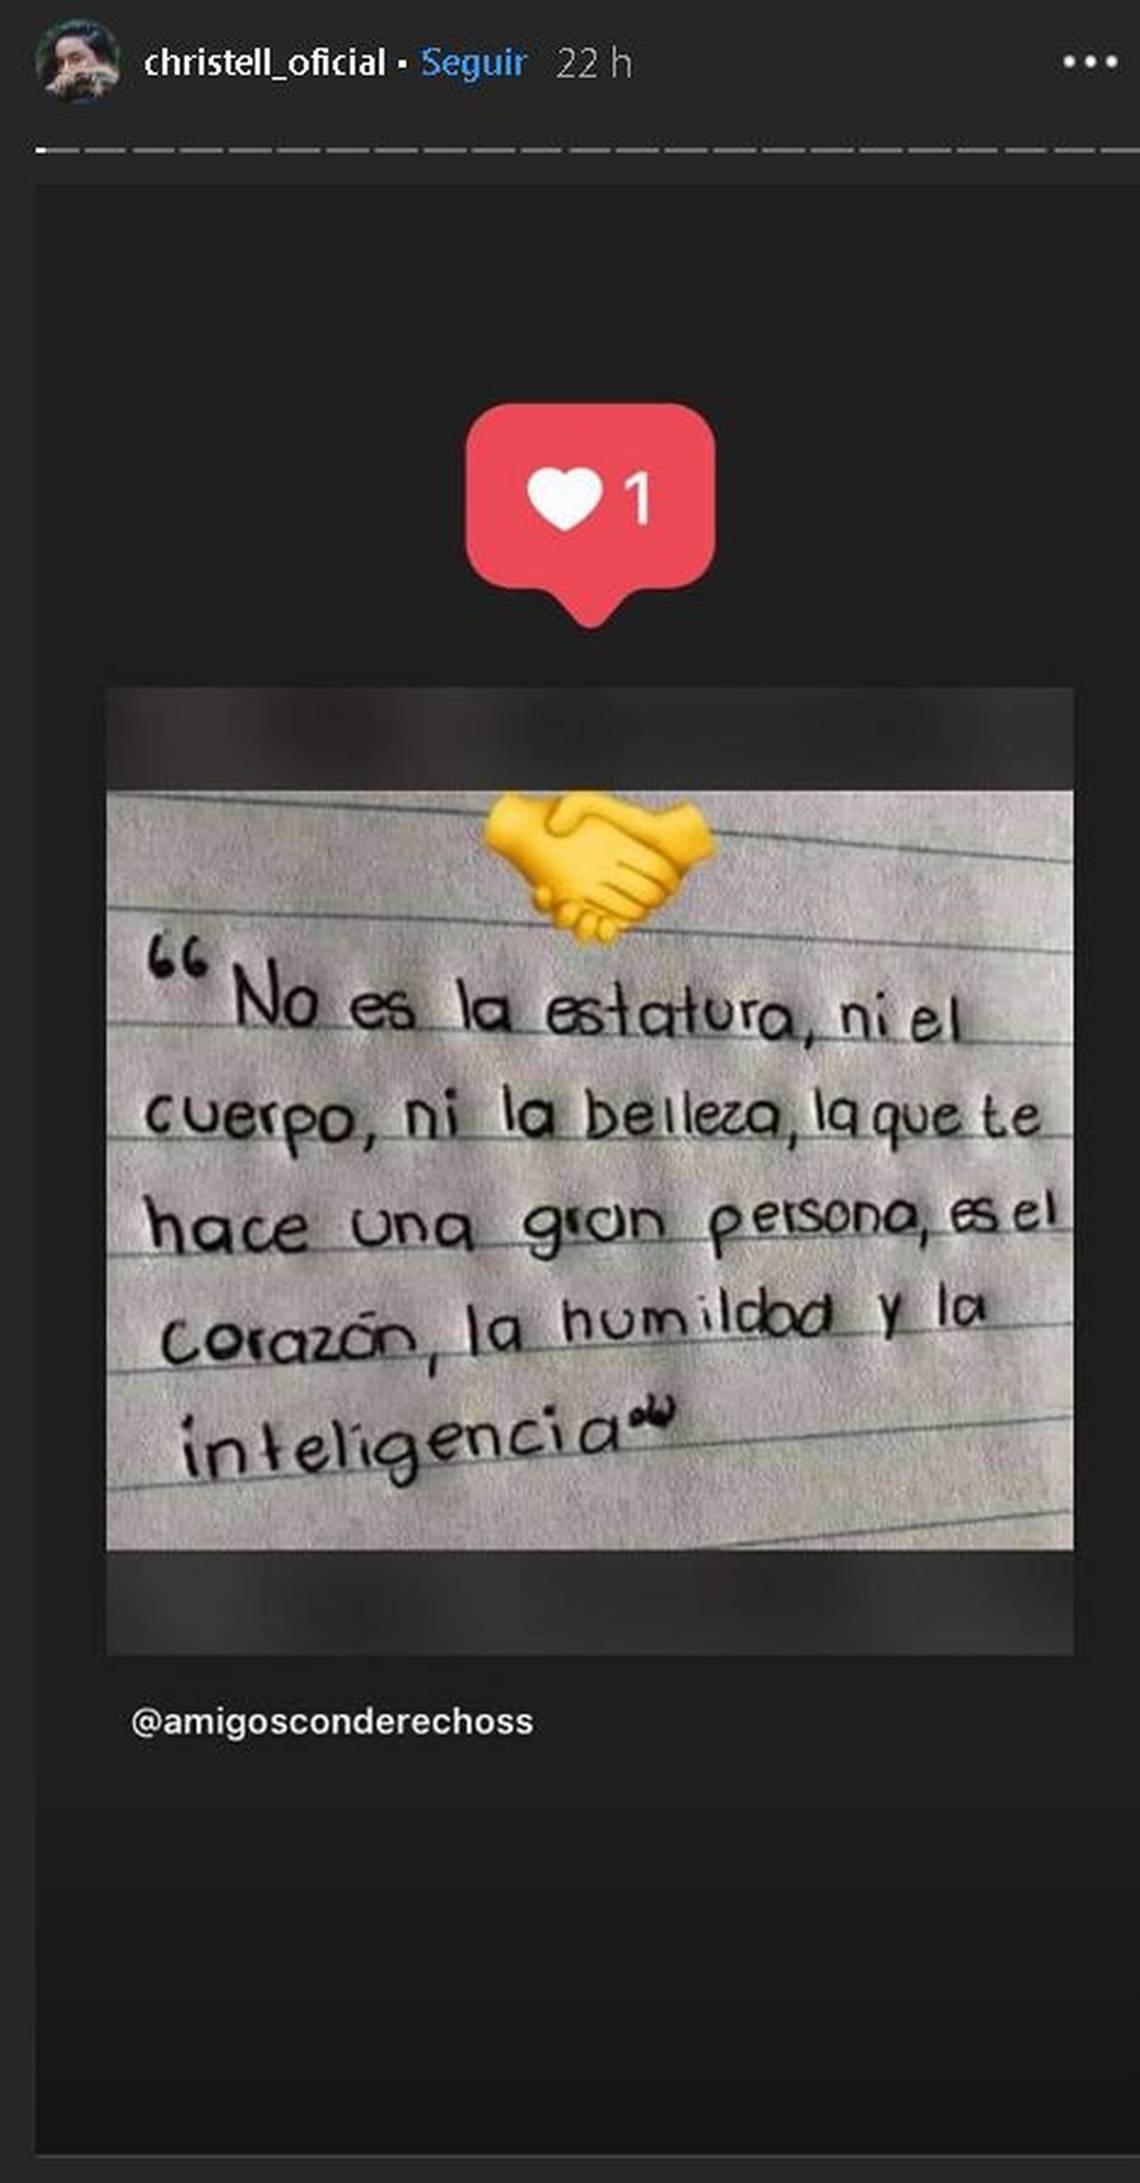 christell_oficial • Seguir 22 h
1
“No es la estatura, ni el
cuerpo, ni la belleza, la que te
hace una gran persona, es el
corazón, la humildad y la
inteligencia”
@amigosconderechoss